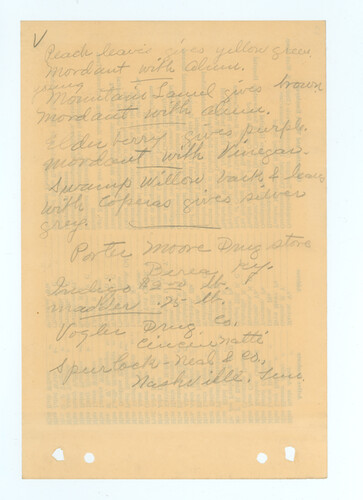 ✓
Peach leaves gives yellow green
Mordant with Alum.
young
Mountain Laurel gives brown
Mordant with Alum.
Elder berry gives purple.
Mordant with Vinegar.
Swamp Willow bark & leaves
with Coperas gives silver
grey.
Porter Moore Drug store
Berea, Ky.
Indigo lb.
Madder .75 lb.
Vogler Drug. Co.
Cincinatti
Spurlock-Neal & Co.
Nashville. Tenn.